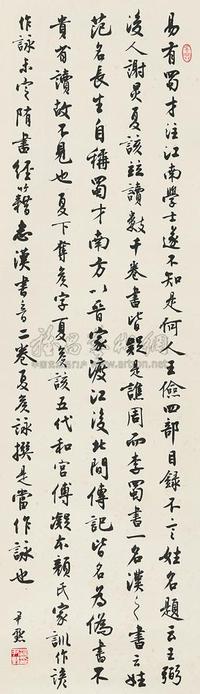 易有蜀才注江南學士遂不知是何人王儉四部目錄不言姓名題云王弼
後人謝炅夏該竝讀數千卷書皆疑是譙周而李蜀書一名漢之書云姓
范名長生自稱蜀才南方以晉家渡江後北間傳記皆名為偽書不
貴省讀故不見也夏下奪侯字夏侯該五代和宮傅凝本顏氏家訓作諺
作詠未定隋書經籍志漢書音二卷夏侯詠撰是當作詠也
尹默